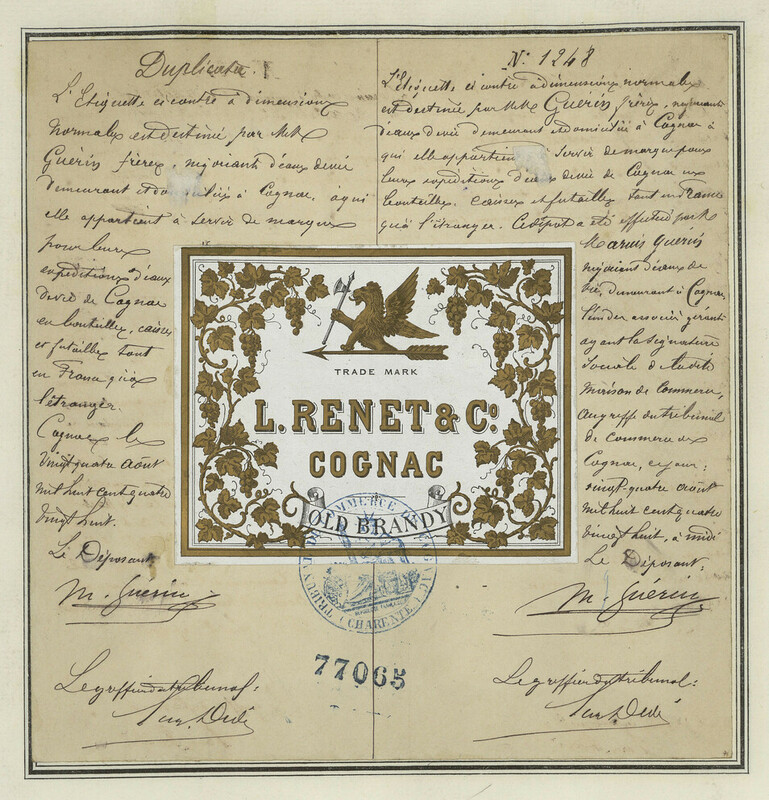 Duplicata
L'Etiquette ci contre à dimensions
normales est destinée par MM
Guérin frères, négociants d'eaux de vie
demeurant et à Cognac, à qui
elle appartient à servir de marque
pour leurs
expéditions d'eaux
de vie de Cognac
en bouteilles, caisses
et futailles tant
en France qu'à
l'étranger.
Cognac le
vingt quatre août
mil huit cent quatre
vingt huit.
Le Déposant
M. Guérin
Le greffier du tribunal:
N: 1248
L'Etiquette ci contre à dimensions normales
est destinée par MM Guérin frères, négociants
d'eaux de vie demeurant et domiciliés à Cognac à
qui elle appartient à servir de marque pour
leurs expéditions d'eaux de vie de Cognac en
bouteilles, caisses et futailles tant en France
qu'à l'étranger. Ce dépôt a été effectué par M
Guérin
négociant d'eaux de
vie, demeurant à Cognac
l'un des associés gérants
ayant la signature
sociale de la dite
maison de commerce,
au greffe du tribunal
de commerce de
Cognac, ce jour:
vingt-quatre août
mil huit cent quatre
vingt huit, à midi
Le Déposant:
M. Guérin
Le greffier du tribunal:
TRADE MARK
L. RENET & Cº
COGNAC
OLD BRANDY
TRIBUNAL DE COMMERCE DE COGNAC
(CHARENTE)
77065